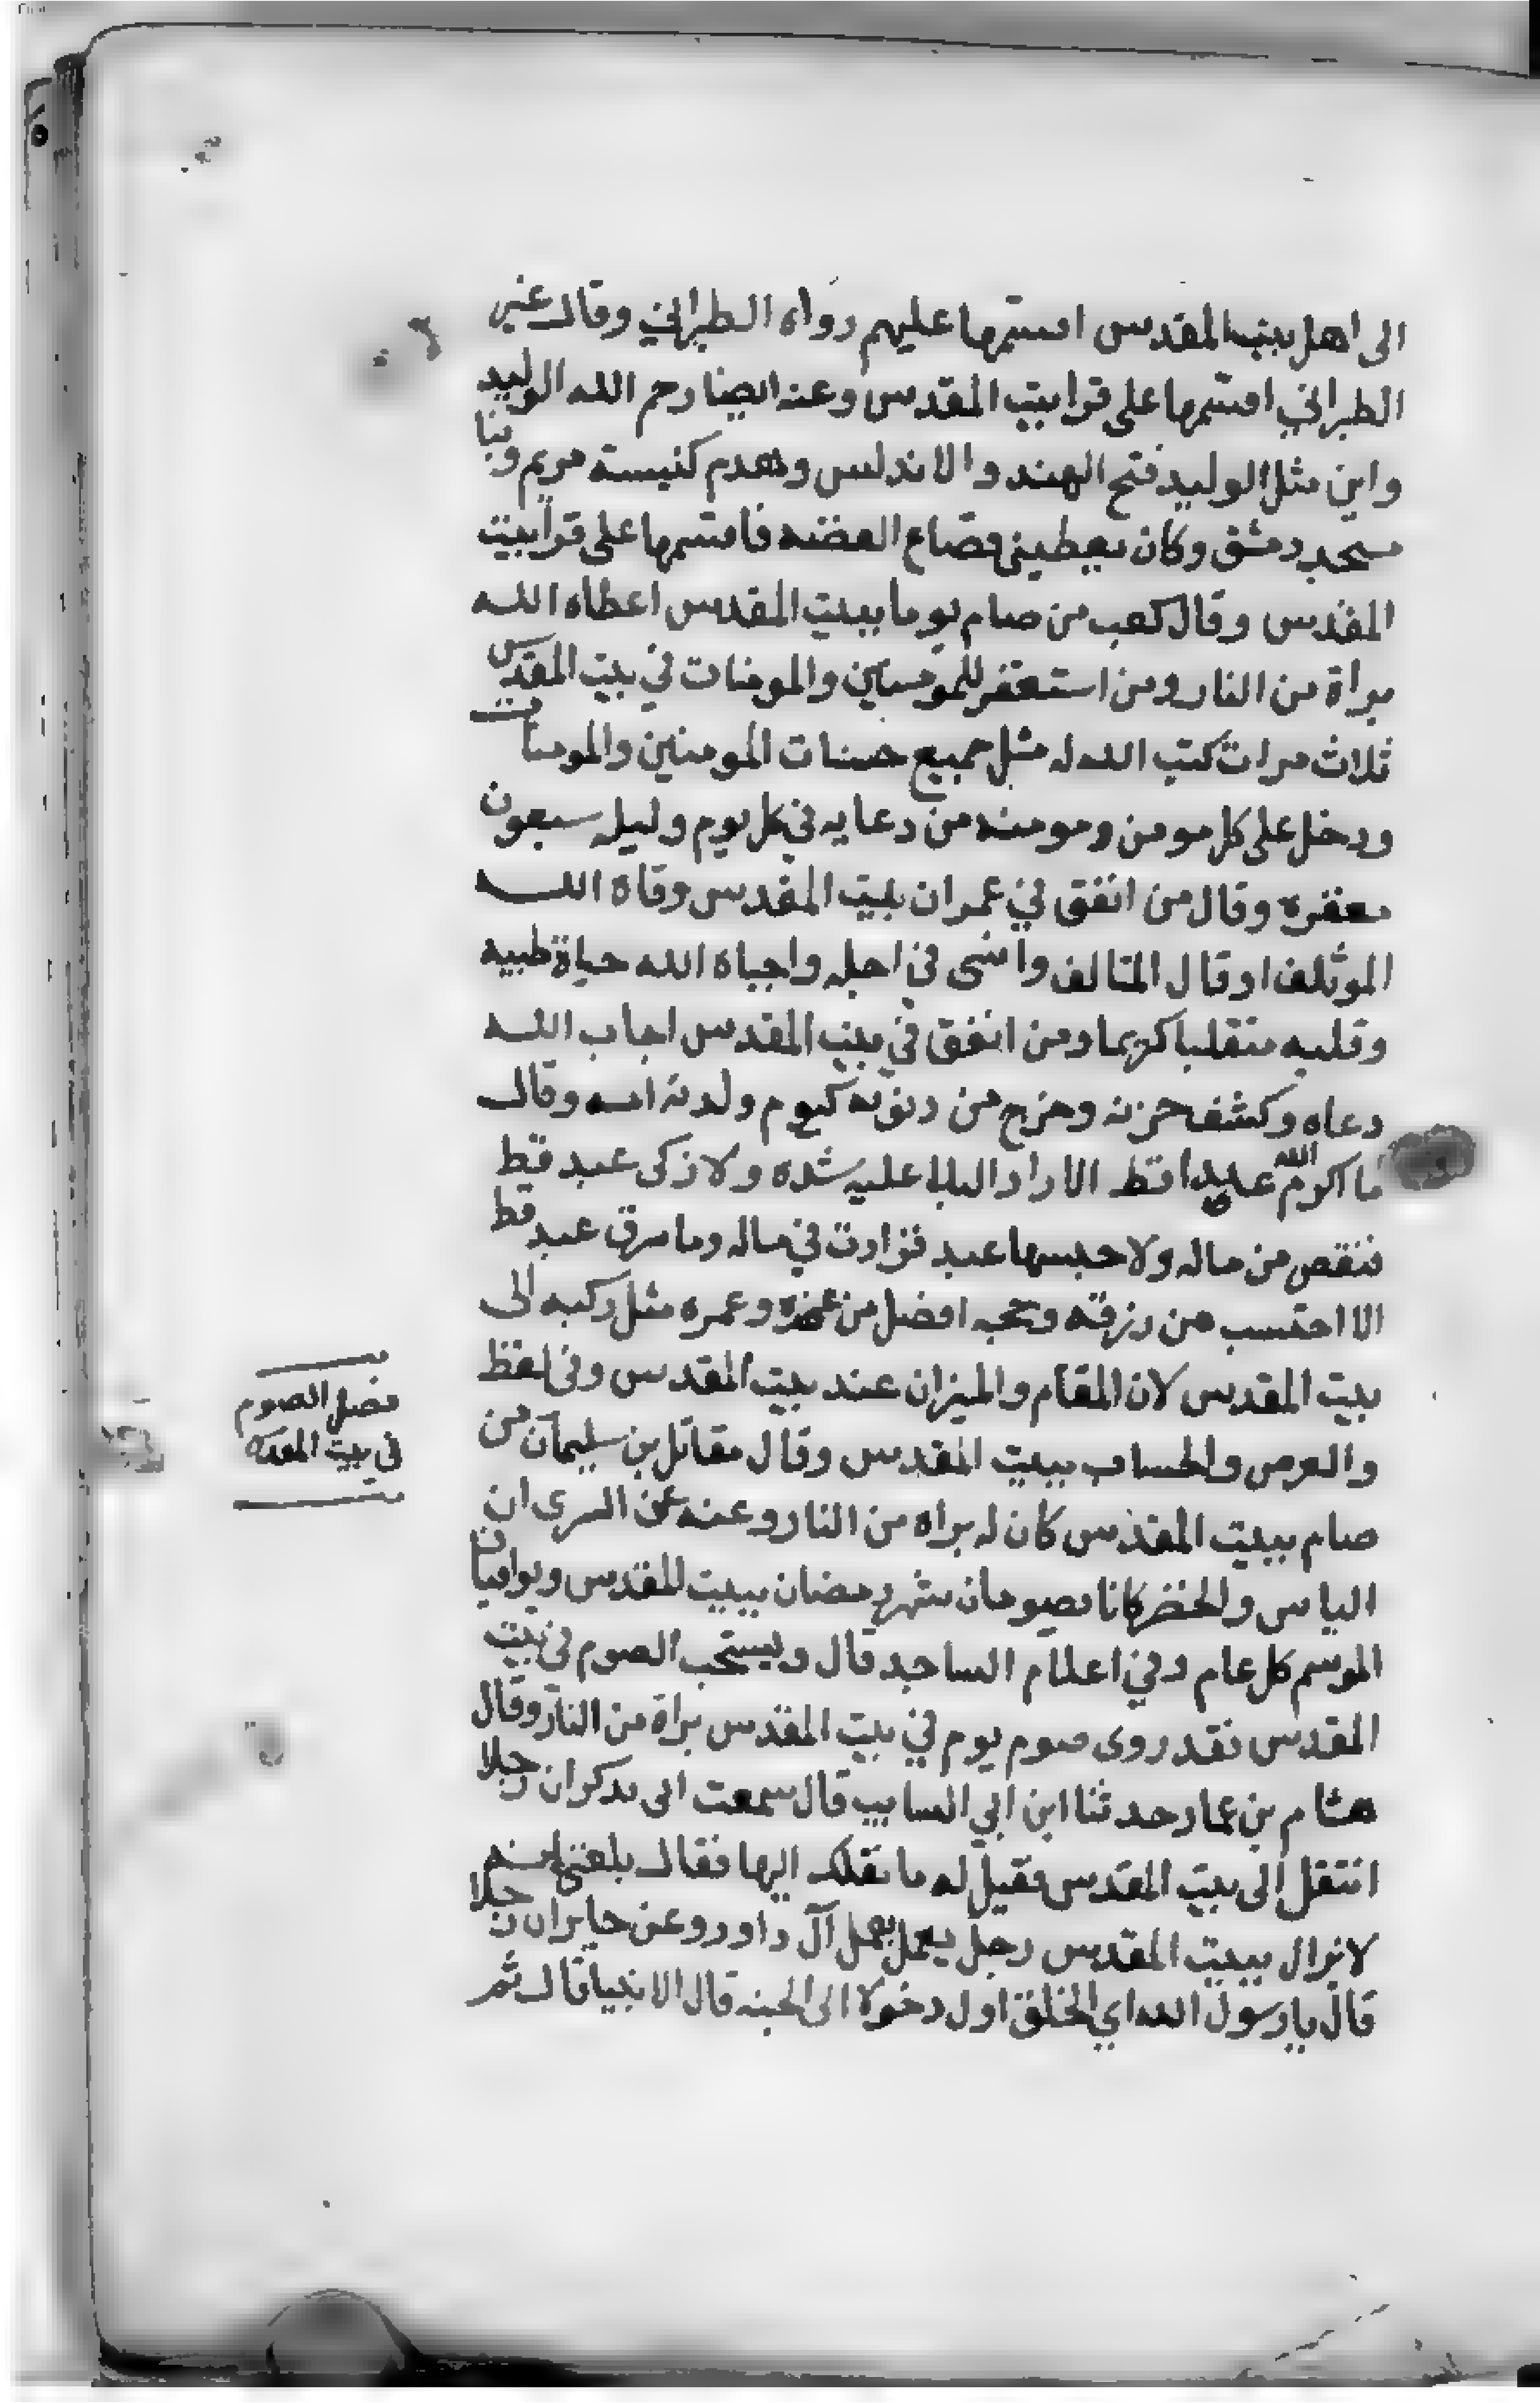 الى اهل بيت المقدس اقسمها عليهم رواه الطبراني وقال غير
الطبراني اقسمها على قرا بيت المقدس وعنه ايضا رحم الله الوليد
واين مثل الوليد فتح الهند والاندلس وهدم كنيسة مريم وبنا
مسجد دمشق وكان يعطيني قصاع الفضه فاقسمها على قرا بيت
المقدس وقال كعب من صام يوما ببيت المقدس اعطاه الله
براة من النار ومن استغفر للمومنين والمومنات في بيت المقدس
ثلاث مرات كتب الله له مثل جميع حسنات المومنين والمومنات
ودخل على كل مومن ومومنه من دعايه في كل يوم وليله سبعون
مغفره وقال من انفق في عمران بيت المقدس وقاه الله
او قال المتالف وانسى في اجله واحياه الله حياة طيبه
وقلبه منقلبا كريما ومن انفق في بيت المقدس اجاب الله
دعاه وكشف حزنه وخرج من ذنوبه كيوم ولدته امه وقال
ما اكرم الله عبدا قط الا زاد البلا عليه شده ولا زكى عبد قط
فنقص من ماله ولا حبسها عبد فزادت في ماله وما سرق عبد قط
الا احتسب من رزقه وحجه افضل من عمره وعمره مثل ركبه الى
بيت المقدس لان المقام والميزان عند بيت المقدس وفي لفظ
والعرض والحساب ببيت المقدس وقال مقاتل بن سليمان من
صام ببيت المقدس كان له براه من النار وعنه عن السرى ان
الياس والخضر كانا يصومان شهر رمضان ببيت المقدس ويوافيان
الموسم كل عام وفي اعلام الساجد قال ويستحب الصوم في بيت
المقدس فقد روى صوم يوم في بيت المقدس براة من النار وقال
هشام بن عمار حدثنا ابن ابي السايب قال سمعت ابى يذكر ان رجلا
انتقل الى بيت المقدس فقيل له ما نقلك اليها فقال بلغني انه
لا يزال ببيت المقدس رجل يعمل بعمل آل داود وعن جابر ان رجلا
قال يا رسول الله اي الخلق اول دخولا الى الجنه قال الانبيا قال ثم
فضل الصوم
في بيت المقدس